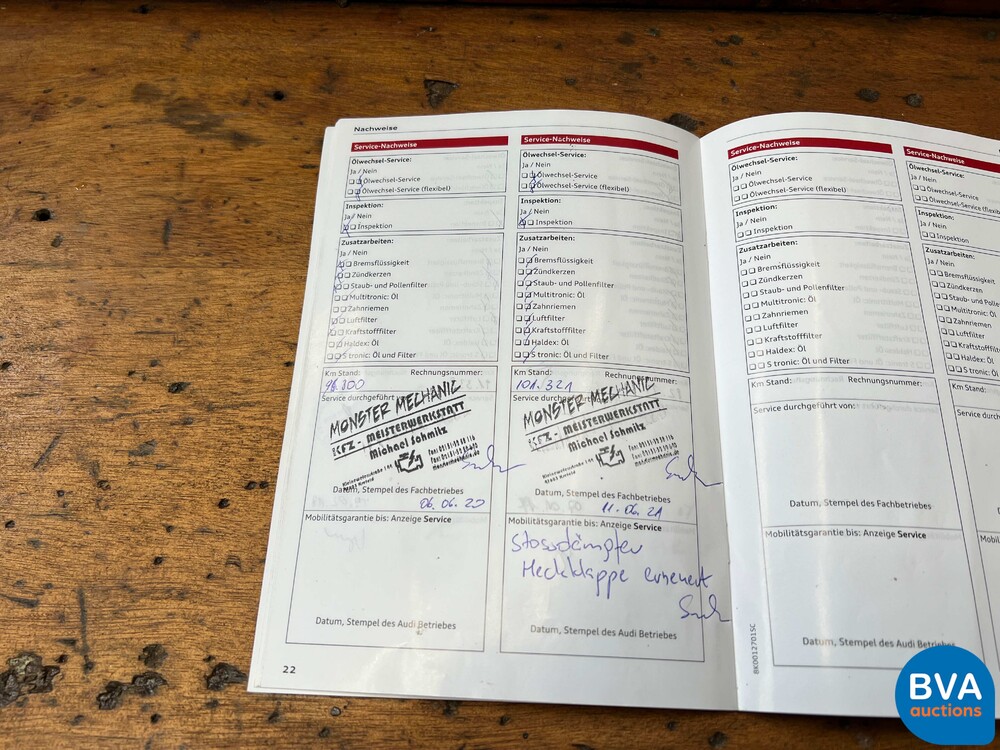 Nachweise
Service-Nachweise
Ölwechsel-Service:
Ja / Nein
Ölwechsel-Service
Ölwechsel-Service (flexibel)
Inspektion:
Ja / Nein
Inspektion
Zusatzarbeiten:
Ja / Nein
Bremsflüssigkeit
Zündkerzen
Staub- und Pollenfilter
Multitronic: Öl
Zahnriemen
Luftfilter
Kraftstofffilter
Haldex: Öl
S tronic: Öl und Filter
Km Stand: Rechnungsnummer:
Service durchgeführt
MONSTER MECHANIC
KFZ - MEISTERWERKSTATT
Michael Schmilz
Datum, Stempel des Fachbetriebes
06.06.20
Mobilitätsgarantie bis: Anzeige Service
Datum, Stempel des Audi Betriebes
22
Service-Nachweise
Ölwechsel-Service:
Ja / Nein
Ölwechsel-Service
Ölwechsel-Service (flexibel)
Inspektion:
Ja / Nein
Inspektion
Zusatzarbeiten:
Ja / Nein
Bremsflüssigkeit
Zündkerzen
Staub- und Pollenfilter
Multitronic: Öl
Zahnriemen
Luftfilter
Kraftstofffilter
Haldex: Öl
S tronic: Öl und Filter
Km Stand: Rechnungsnummer:
101.321
Service
MONSTER MECHANIC
KFZ - MEISTERWERKSTATT
Michael Schmilz
Datum, Stempel des Fachbetriebes
11.06.21
Mobilitätsgarantie bis: Anzeige Service
Stossdämpfer
Heckklappe erneuert
Datum, Stempel des Audi Betriebes
Service-Nachweise
Ölwechsel-Service:
Ja / Nein
Ölwechsel-Service
Ölwechsel-Service (flexibel)
Inspektion:
Ja / Nein
Inspektion
Zusatzarbeiten:
Ja / Nein
Bremsflüssigkeit
Zündkerzen
Staub- und Pollenfilter
Multitronic: Öl
Zahnriemen
Luftfilter
Kraftstofffilter
Haldex: Öl
S tronic: Öl und Filter
Km Stand: Rechnungsnummer:
Service durchgeführt von:
Datum, Stempel des Fachbetriebes
Mobilitätsgarantie bis: Anzeige Service
Datum, Stempel des Audi Betriebes
BK0012701SC
Service-Nachweise
Ölwechsel-Service:
Ja / Nein
Ölwechsel-Service
Ölwechsel-Service
Inspektion:
Ja / Nein
Inspektion
Zusatzarbeiten:
Ja / Nein
Bremsflüssigkeit
Zündkerzen
Staub- und
Multitronic: Öl
Zahnriemen
Luftfilter
Haldex: Öl
S tronic: Öl
Km Stand:
Service
BVA
auctions